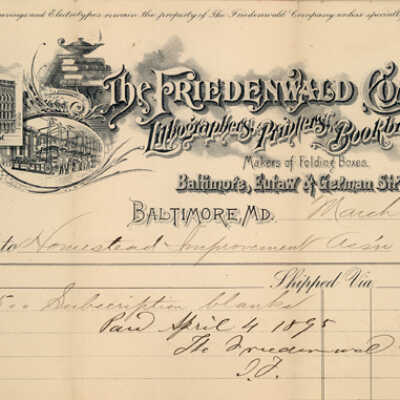 Drawings and Electrotypes remain the property of The Friedenwald Company unless
The Friedenwald Co
Lithographers, Printers, Bookb
Makers of Folding Boxes.
Baltimore, Eutaw & German Str
Baltimore, Md. March
to Homestead Improvement Ass'n
Shipped Via
Subscription blanks
Paid April 4 1895
The Friedenwal
J.F.